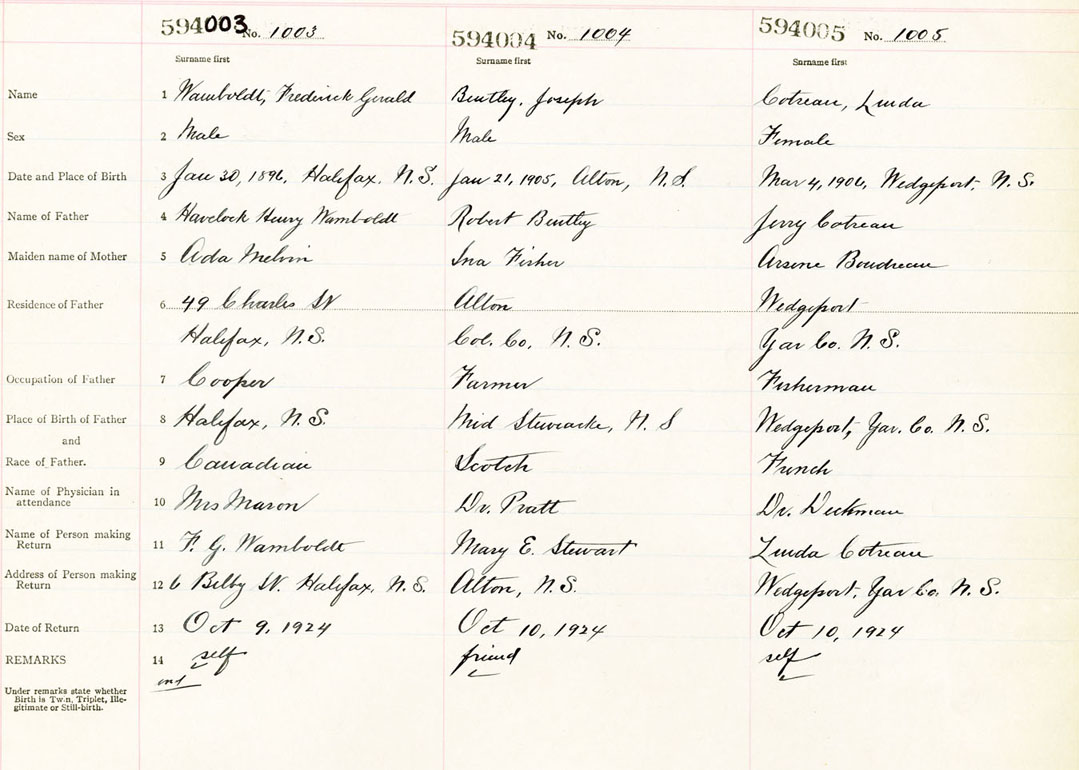 594003 No. 1003 594004 No. 1004 594005 No. 1005
Surname first Surname first Surname first
Name 1 Wamboldt, Frederick Gerald Bentley, Joseph Cotreau, Linda
Sex 2 Male Male Female
Date and Place of Birth 3 Jan 30, 1896, Halifax, N.S. Jan 21, 1905, Alton, N.S. Mar 4, 1906, Wedgeport, N.S.
Name of Father 4 Havelock Henry Wamboldt Robert Bentley Jerry Cotreau
Maiden name of Mother 5 Ada Melvin Ina Fisher Arsene Boudreau
Residence of Father 6 49 Charles St Alton Wedgeport
Halifax, N.S. Col. Co. N.S. Yar Co. N.S.
Occupation of Father 7 Cooper Farmer Fisherman
Place of Birth of Father 8 Halifax, N.S. Mid Stewiacke, N.S Wedgeport, Yar. Co. N.S.
and
Race of Father. 9 Canadian Scotch French
Name of Physician in
attendance 10 Mrs Mason Dr. Pratt Dr.
Name of Person making
Return 11 F. G. Wamboldt Mary E. Stewart Linda Cotreau
Address of Person making
Return 12 6 Bilby St. Halifax, N.S. Alton, N.S. Wedgeport, Yar Co. N.S.
Date of Return 13 Oct 9, 1924 Oct 10, 1924 Oct 10, 1924
REMARKS 14 self friend self
Under remarks state whether
Birth is Twin, Triplet, Ille-
gitimate or Still-birth.